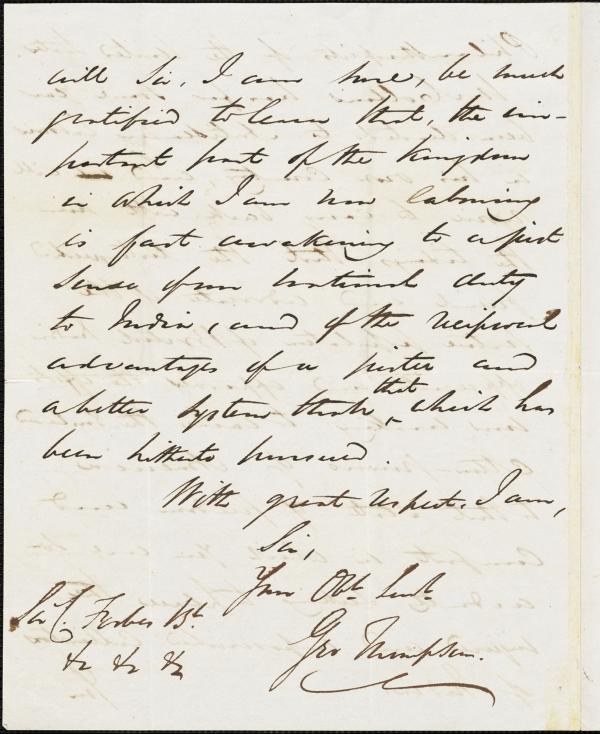 will Sir, I am sure, be much
gratified to learn that, the im-
portant part of the Kingdom
in which I am now labouring
is fast awakening to a just
sense of our national duty
to India, and of the reciprocal
advantages of a juster and
a better system than that, which has
been hitherto pursued.
With great respect, I am,
Sir,
Your Obt. Servt.
Geo Thompson.
Sir C. Forbes Bt.
&c &c &c